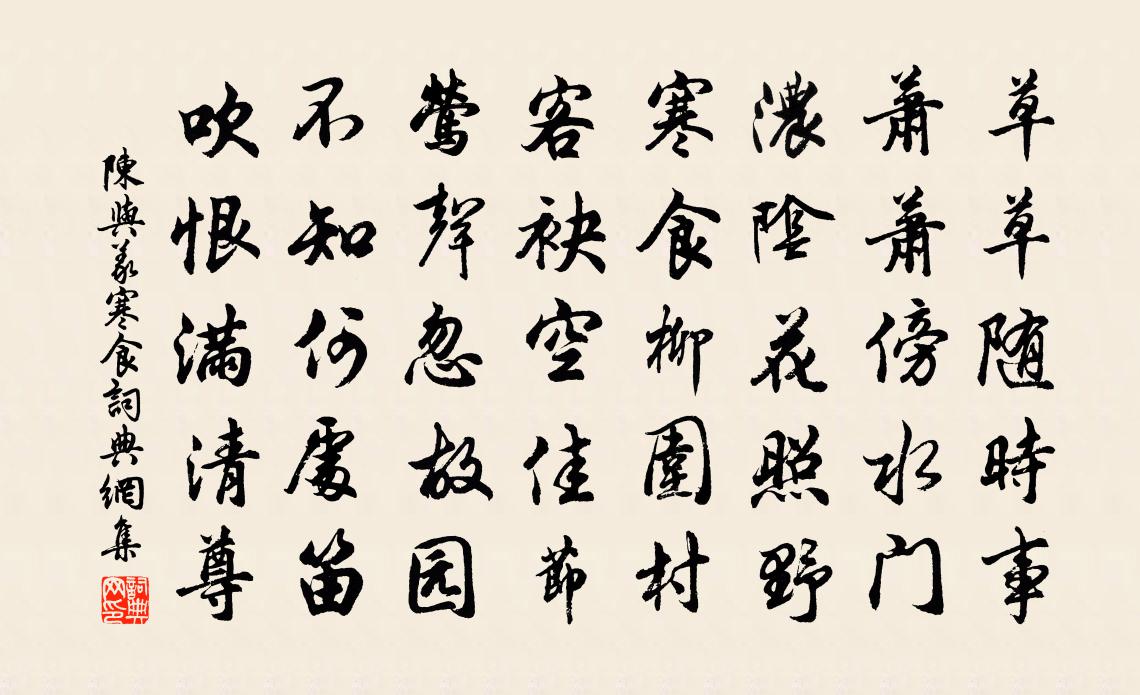 草草随時事
蕭蕭傍水门
濃陰花照野
寒食柳圍村
客袂空佳節
鶯聲忽故园
不知何處笛
吹恨滿清尊
陳與義寒食詞典網集
詞典网印